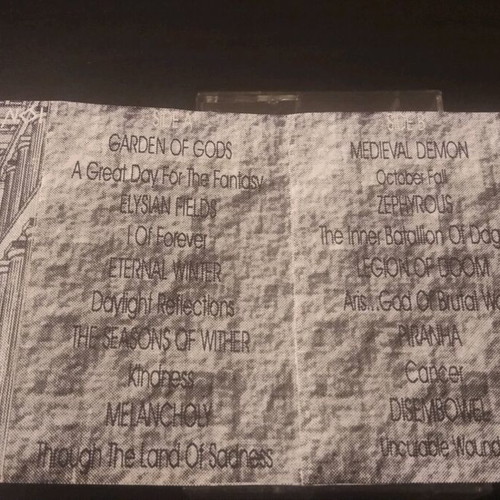 SIDE A
GARDEN OF GODS
A Great Day For The Fantasy
ELYSIAN FIELDS
I Of Forever
ETERNAL WINTER
Daylight Reflections
THE SEASONS OF WITHER
Kindness
MELANCHOLY
Through The Land Of Sadness
MEDIEVAL DEMON
October Fall
ZEPHYROUS
The Inner Batallion Of
LEGION OF DOOM
Aris...God Of Brutal
PIRANHA
Cancer
DISEMBOWEL
Uncurable